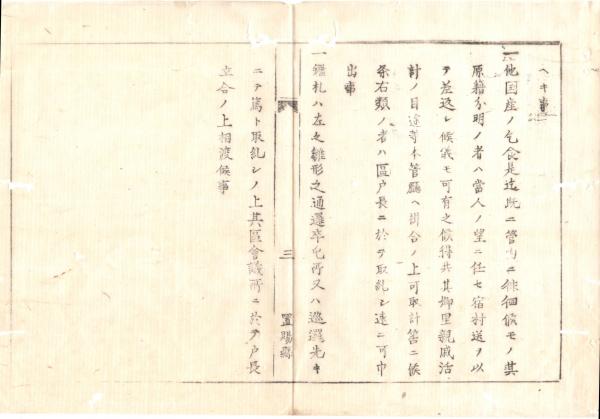 ヘキ事
一他国産ノ乞食是迄既ニ管内ニ徘徊候モノ其
原籍分明ノ者ハ當人ノ望ニ任セ宿村送ヲ以
テ差送シ候儀モ可有之候得共其郷里親戚活
計ノ目途等本管廳ヘ掛合ノ上可取計筈ニ候
条右類ノ者ハ區戸長ニ於テ取糺シ速ニ可申
出事
一鑑札ハ左之雛形之通邏卒屯所又ハ巡邏先キ
三
置賜縣
ニテ篤ト取糺シノ上其區會議所ニ於テ戸長
立合ノ上相渡候事